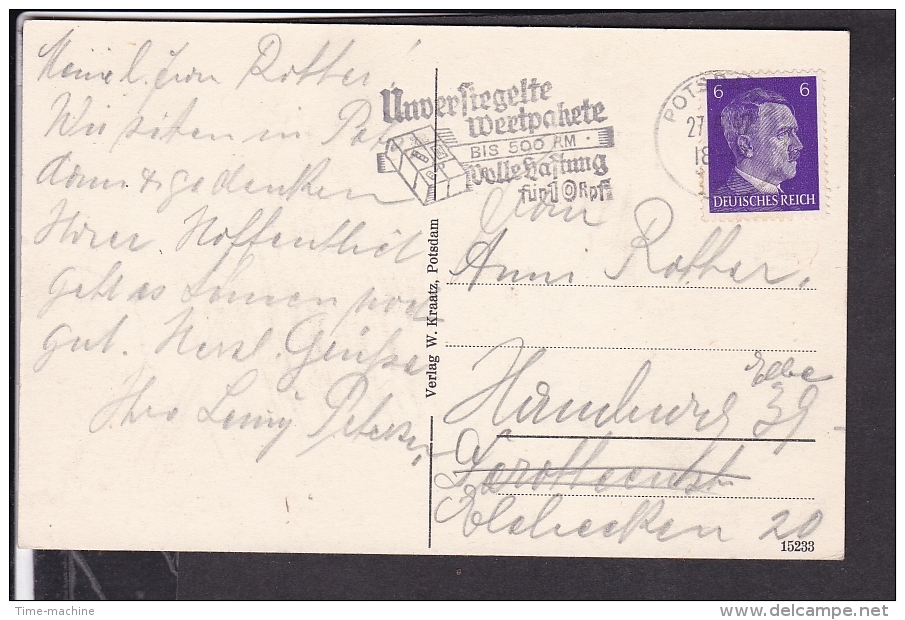 Meine l. Frau Rotter!
Wir sitzen in Pots
dam & gedenken
Ihrer. Hoffentlich
geht es Ihnen noch
gut. Herzl. Grüße
Ihre Petersen
Unversiegelte
Wertpakete
BIS 500 RM
Volle Haftung
für 10 Rpf
POTSD
27
18
6 6
DEUTSCHES REICH
Verlag W. Kraatz, Potsdam
Frau
Anni Rotter,
Hamburg 39
Elsbecken 20
15233
Time-machine
www.delcampe.net